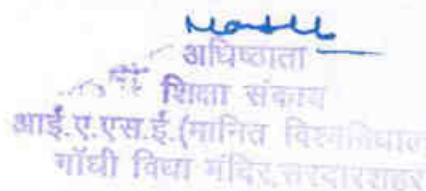 अधिष्ठाता
शिक्षा संकाय
आई.ए.एस.ई.(मानित
गाँधी विद्या मंदिर,सरदारशहर